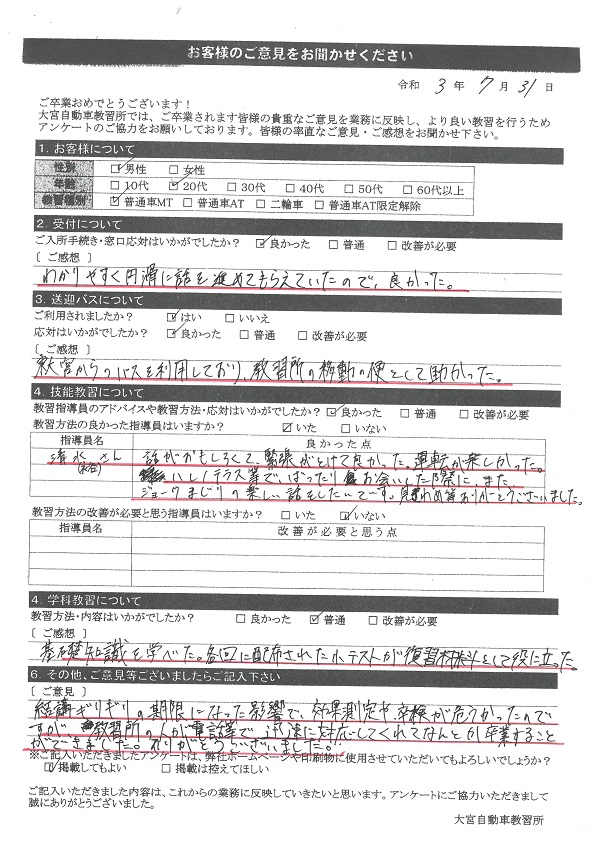 お客様のご意見をお聞かせください
令和 3 年 7 月 31 日
ご卒業おめでとうございます！
大宮自動車教習所では、ご卒業されます皆様の貴重なご意見を業務に反映し、より良い教習を行うため
アンケートのご協力をお願いしております。皆様の率直なご意見・ご感想をお聞かせ下さい。
1. お客様について
性別 ☑男性 □女性
年齢 □10代 ☑20代 □30代 □40代 □50代 □60代以上
教習種別 ☑普通車MT □普通車AT □二輪車 □普通車AT限定解除
2. 受付について
ご入所手続き・窓口応対はいかがでしたか？ ☑良かった □普通 □改善が必要
［ ご感想 ］
わかりやすく円滑に話を進めてもらえていたので、良かった。
3. 送迎バスについて
ご利用されましたか？ ☑はい □いいえ
応対はいかがでしたか？ ☑良かった □普通 □改善が必要
［ ご感想 ］
東大宮からのバスを利用しており、教習所の移動の便として助かった。
4. 技能教習について
教習指導員のアドバイスや教習方法・応対はいかがでしたか？ ☑良かった □普通 □改善が必要
教習方法の良かった指導員はいますか？ ☑いた □いない
指導員名 良かった点
清水 さん 話がおもしろくて、緊張がとけて良かった。運転が楽しかった。
ハレノテラス等で、ばったりお会いした際に、また
ジョークまじりの楽しい話をしたいです。ありがとうございました。
教習方法の改善が必要と思う指導員はいますか？ □いた ☑いない
指導員名 改善が必要と思う点
4. 学科教習について
教習方法・内容はいかがでしたか？ □良かった ☑普通 □改善が必要
［ ご感想 ］
基礎知識を学べた。毎回に配布された小テストが復習材料として役に立った。
6. その他、ご意見等ございましたらご記入下さい
［ ご意見 ］
結構ギリギリの期限になった影響で、効果測定や卒検が危うかったので
すが、教習所の人が電話等で、迅速に対応してくれてなんとか卒業すること
ができました。ありがとうございました。
※ご記入いただきましたアンケートは、弊社ホームページや印刷物に使用させていただいてもよろしいでしょうか？
☑掲載してもよい □掲載は控えてほしい
ご記入いただきました内容は、これからの業務に反映していきたいと思います。アンケートにご協力いただきまして
誠にありがとうございました。
大宮自動車教習所